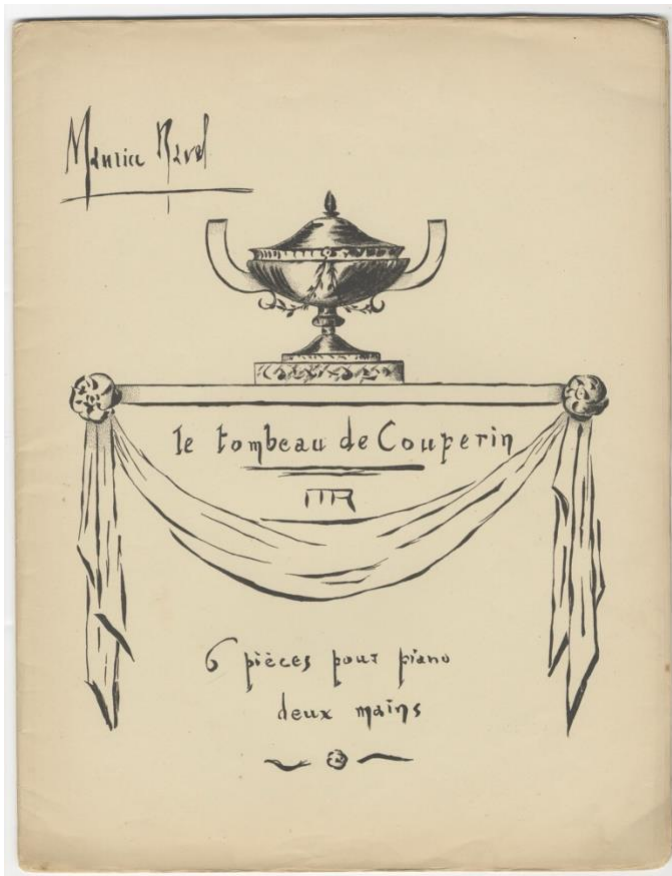 Maurice Ravel
le tombeau de Couperin
MR
6 pièces pour piano
deux mains